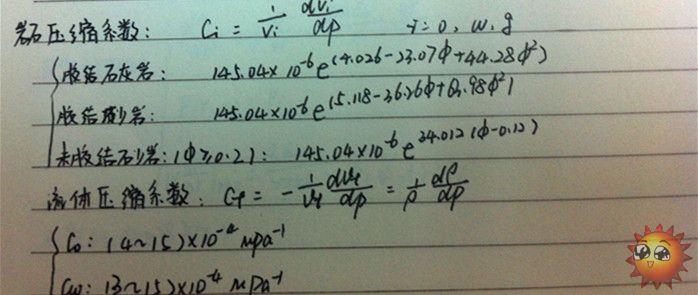 岩石压缩系数: Ci = 1/Vi dVi/dp i=o, w, g
胶结石灰岩: 145.04×10⁻⁶ e^(4.026-23.07φ+44.28φ²)
胶结砂岩: 145.04×10⁻⁶ e^(5.118-36.26φ+63.98φ²)
未胶结石砂岩: (φ≥0.2): 145.04×10⁻⁶ e^34.012(φ-0.12)
流体压缩系数: Cf = - 1/Vf dVf/dp = 1/ρ dρ/dp
Co: (4~15)×10⁻⁴ MPa⁻¹
Cw: (3~15)×10⁻⁴ MPa⁻¹